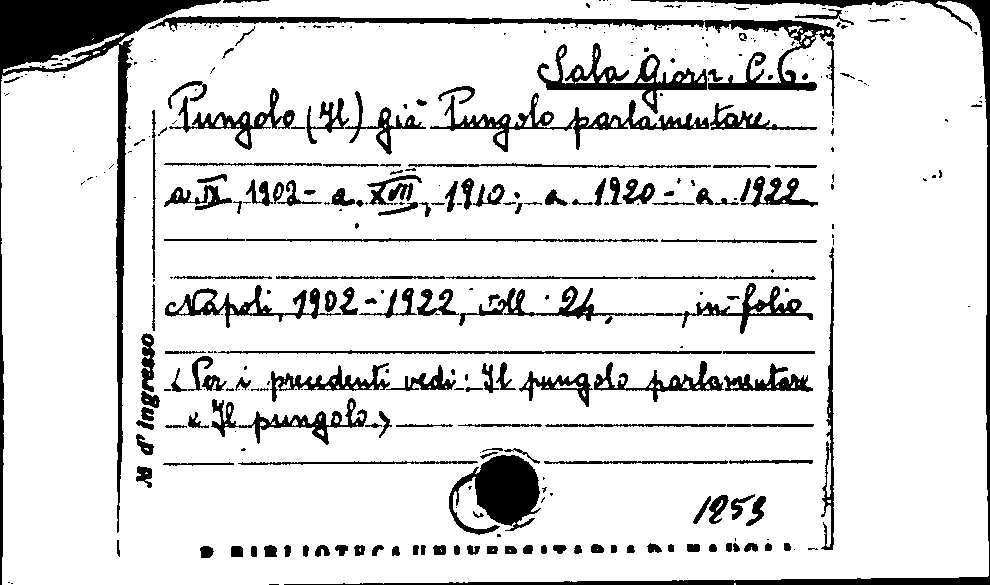 Sala Giorn. C.6.
Pungolo (Il) già Pungolo parlamentare.
a. IX, 1902 - a. XVII, 1910; a. 1920 - a. 1922
Napoli, 1902 - 1922, voll. 24, , in-folio.
<Per i precedenti vedi: Il pungolo parlamentare
e Il pungolo.>
1253
N d'ingresso
R. BIBLIOTECA UNIVERSITARIA DI NAPOLI